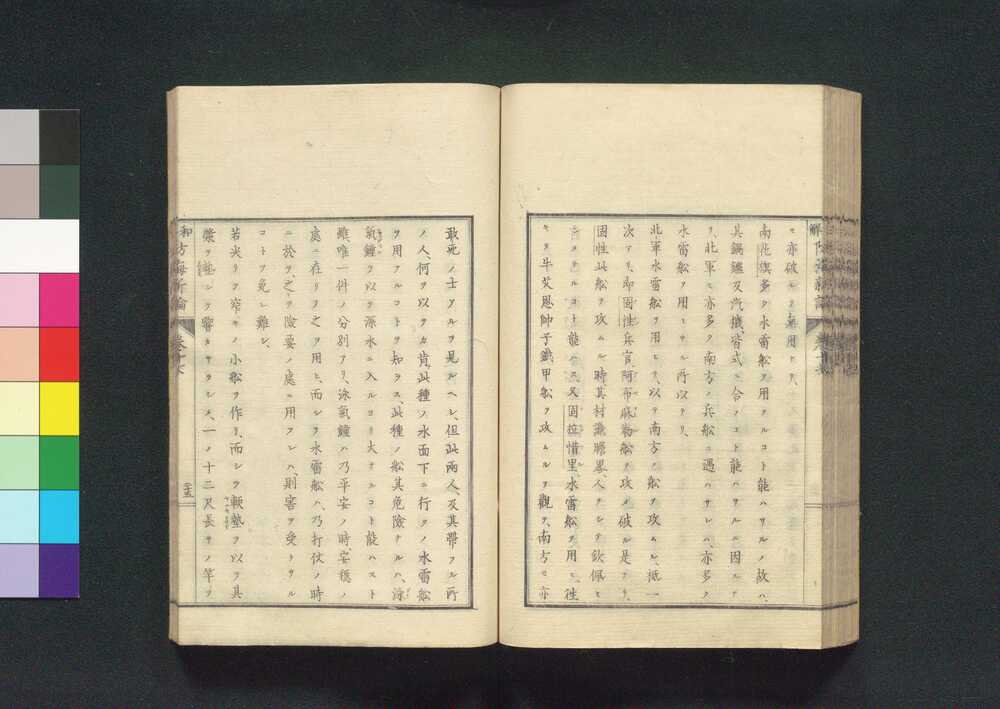 モ亦破ルヽ無用トス、
南花旗多ク水雷船ヲ用ヲルコト能ハサルノ故ハ、
其鍋鑪及汽機、皆式ニ合フコト能ハサルニ因ルナ
リ、北軍モ亦多ク南方ノ兵船ニ遇ハサレハ、亦多ク
水雷船ヲ用ヒサル所以ナリ、
北軍水雷船ヲ用ヒ、以テ南方ノ船ヲ攻ムル、抵一
次ナリ、即固性兵官、阿布麻勒船ヲ攻メ破ル是ナリ、
固性此船ヲ攻ムル時、其材識膽畧、人ヲシテ欽佩セ
コト能ハス、又固拉惜里、水雷船ヲ用ヒ、往
キテ牛艾恩帥子鐵甲船ヲ攻ムルヲ觀テ、南方モ亦
敢死ノ士アルヲ見ルヘシ、但此兩人、及其帶フル所
ノ人、何ヲ以テカ肯此種ノ水面下ニ行クノ水雷船
ヲ用フルコトヲ知ラス、此種ノ船其危險ナルハ、泳
氣鐘ヲ以テ深水ニ入ルヨリ大ナルコト能ハスト
雖唯一件ノ分別アリ、泳氣鐘ハ乃平安ノ時、安穩ノ
處ニ在リテ之ヲ用ヒ、而シテ水雷船ハ、乃打仗ノ時
ニ於テ、之ヲ險要ノ處ニ用フレハ、則害ヲ受ケサル
コトヲ免レ難シ、
若尖リテ窄キノ小船ヲ作リ、而シテ軟墊ヲ以テ具
槳ヲシテ響カサラシメ、一ノ十二尺長サノ竿ヲ
防海新論
卷十七
二十五